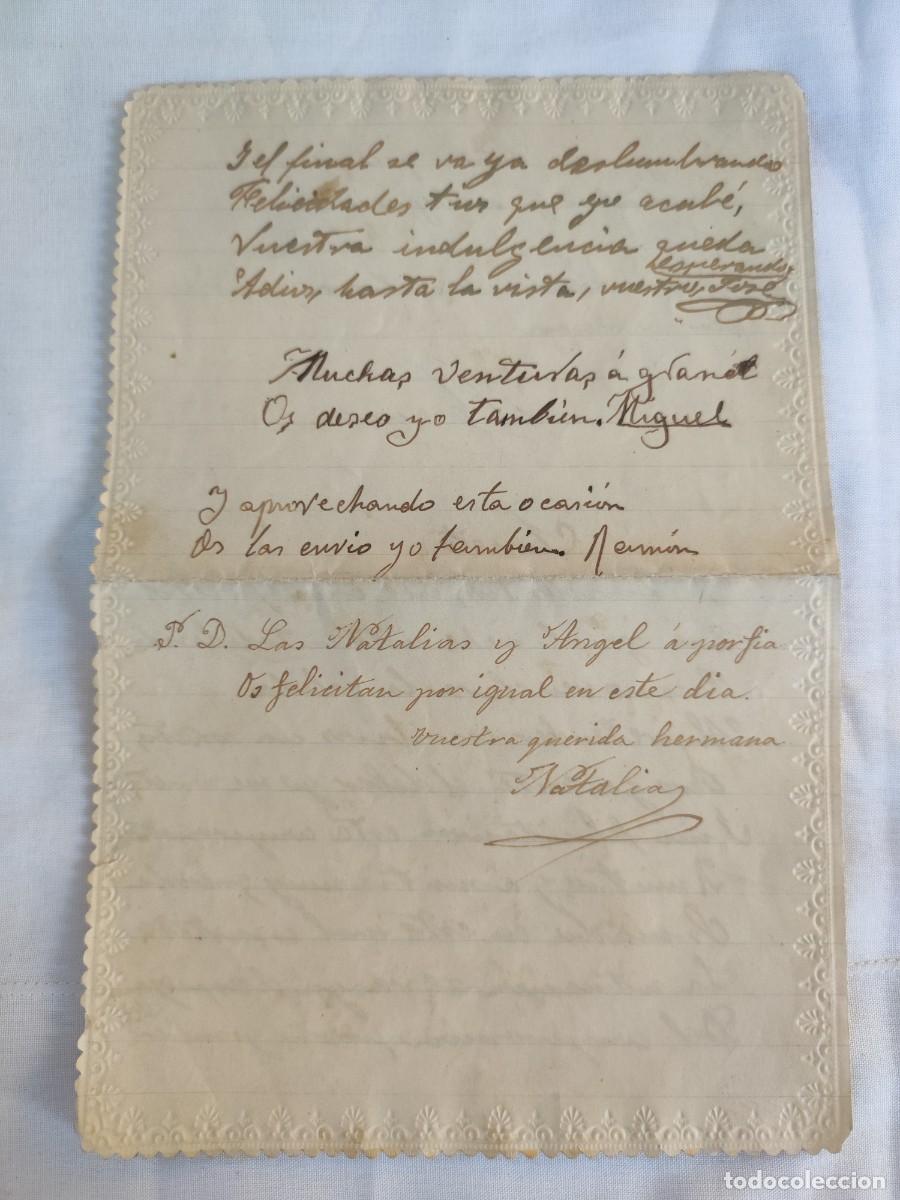 Y el final se va ya deslumbrando
Felicidades tus que yo acabé,
Vuestra indulgencia queda
esperando,
Adios, hasta la vista, vuestro, José
Muchas venturas á granel
Os deseo yo tambien. Miguel
Y aprovechando esta ocasión
Os las envio yo tambien. Ramón
P. D. Las Natalias y Angel á porfia
Os felicitan por igual en este dia.
Vuestra querida hermana
Natalia
todocoleccion